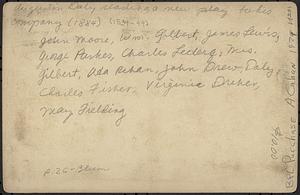 Augustin Daly reading a new play to his
company (1884) (1884-99)
John Moore, Wm. Gilbert, James Lewis,
George Parkes, Charles Leclerq, Mrs.
Gilbert, Ada Rehan, John Drew, Daly,
Charles Fisher, Virginia Dreher,
May Fielding
BPL Purchase A Cohen 1979